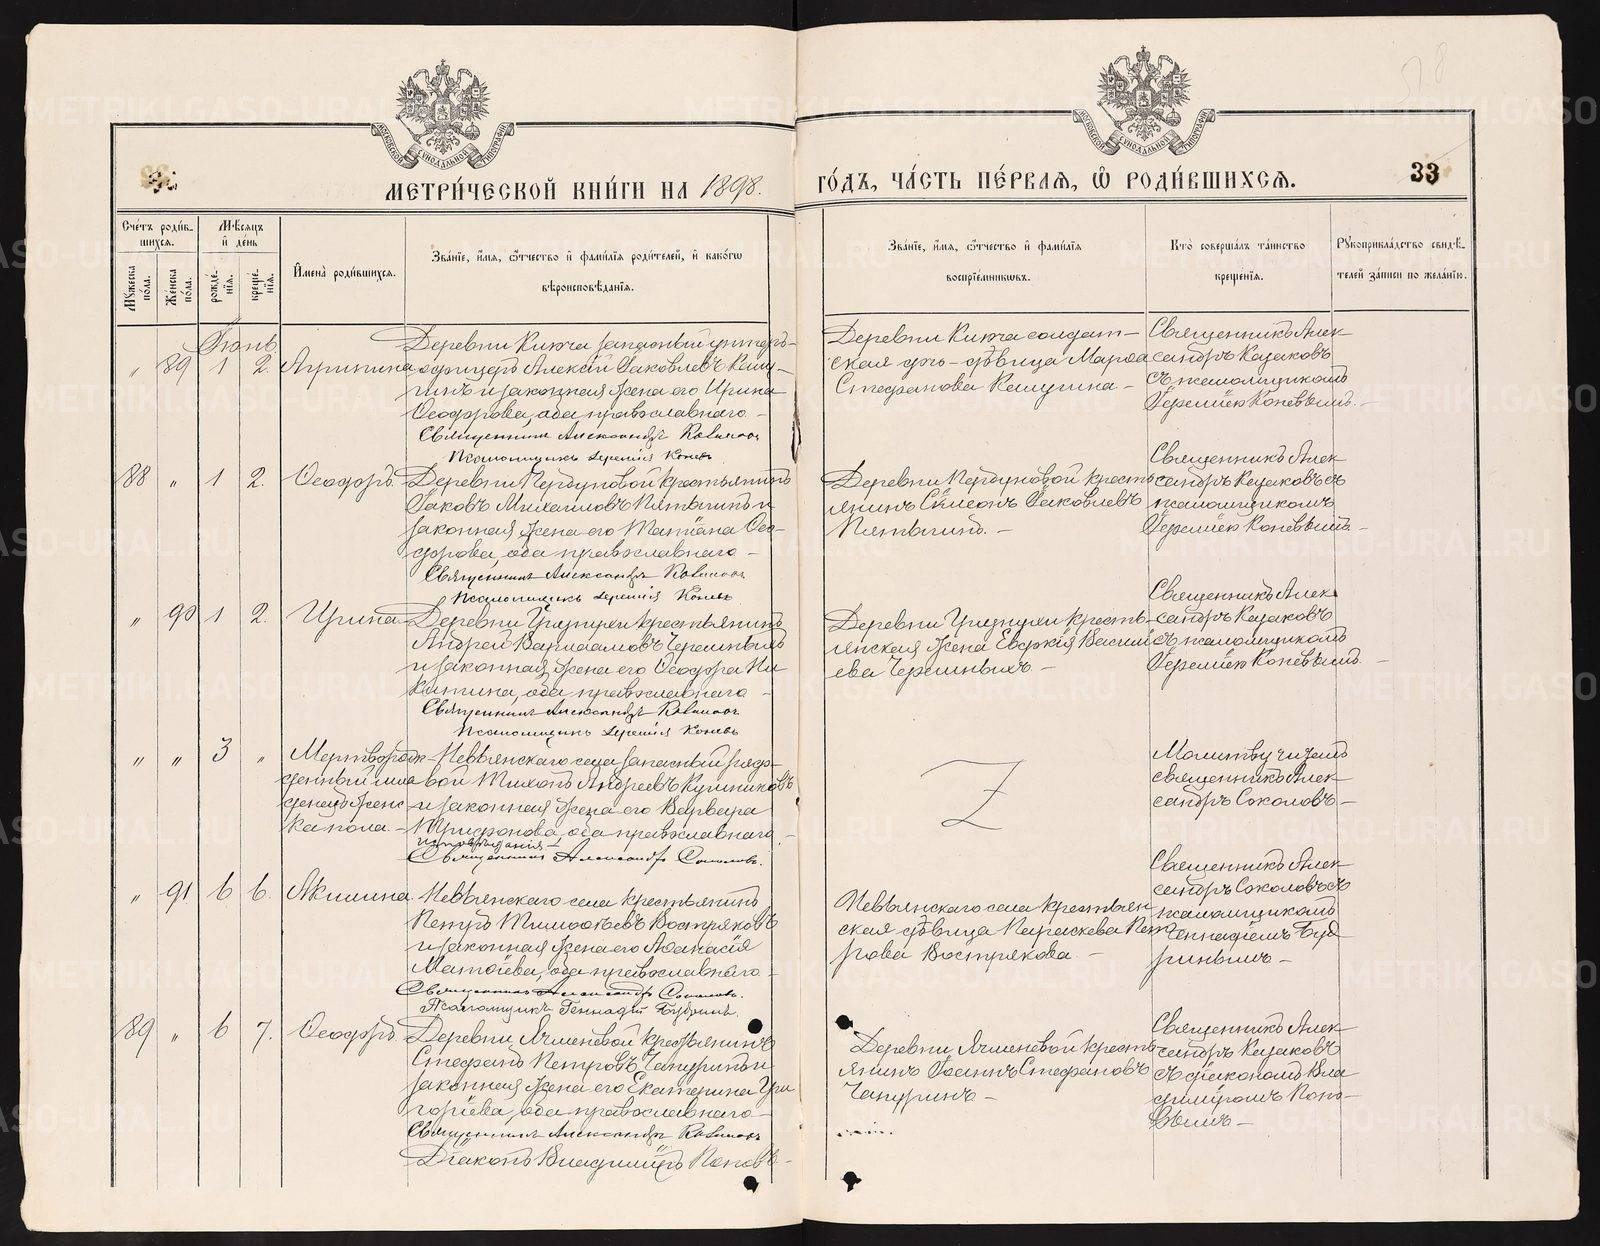 МЕТРИ́ЧЕСКОЙ КНИ́ГИ НА 1898.
ГО́ДЪ, ЧА́СТЬ ПЕ́РВАЯ, Ѿ РОДИ́ВШИХСЯ.
33
Сче́тъ роди́в-
шихся.
Мѣ́сяцъ
и҆ де́нь
Мꙋ́жеска по́ла.
Же́нска по́ла.
рожде́-нїя.
креще́-нїя.
И҆мена̀ роди́вшихся.
Зва́нїе, и҆́мя, ѻ҆́тчество и҆ фамı́лїя роди́телей, и҆ како́гѡ
вѣроисповѣ́данїя.
Зва́нїе, и҆́мя, ѻ҆́тчество и҆ фамı́лїя
воспрїе́мникѡвъ.
Кто̀ соверша́лъ та́инство
креще́нїя.
Рꙋкоприкла́дство свидѣ́-
телей за́писи по жела́нїю.
Іюнь
„ 89 1 2. Агрипина
Деревни Кипча запасный унтеръ-
офицеръ Алексій Іаковлевъ Калу-
гинъ и законная жена его Ирина
Ѳеодорова, оба православнаго –
Священникъ Александръ Казаковъ
Псаломщикъ Іеремія Коневъ
Деревни Кипча солдат-
ская дочь – дѣвица Марѳа
Стефанова Калугина –
Священникъ Алек-
сандръ Казаковъ
съ псаломщикомъ
Іереміею Коневымъ. –
88 „ 1 2. Ѳеодоръ.
Деревни крестьянинъ
Іаковъ Михаиловъ Пятыгинъ и
законная жена его Татіана Ѳео-
дорова, оба православнаго –
Священникъ Александръ Казаковъ
Псаломщикъ Іеремія Коневъ.
Деревни кресть
янинъ Сѵмеонъ Іаковлевъ
Пятыгинъ. –
Священникъ Алек
сандръ Казаковъ съ
псаломщикомъ
Іереміею Коневымъ. –
„ 90 1 2. Ирина
Деревни крестьянинъ
Андрей Варлаамовъ Черемныхъ
и законная жена его Ѳеодора Ни
китина, оба православнаго –
Священникъ Александръ Казаковъ
Псаломщикъ Іеремія Коневъ
Деревни кресть-
янская жена Евдокія Васили
ева Черемныхъ –
Священникъ Алек
сандръ Казаковъ
съ псаломщикомъ
Іереміею Коневымъ. –
„ „ 3 „ Мертворож-
денный мла
денецъ женс-
ка пола. –
Невьянскаго села запасный рядо-
вой Тихонъ Андреевъ Кушниковъ
и законная жена его Варвара
Трифонова, оба православнаго –
исповѣданія –
Священникъ Александръ Соколовъ.
Z
Молитву читалъ
священникъ Алек-
сандръ Соколовъ –
„ 91 6 6. Акилина
Невьянскаго села крестьянинъ
Петръ Тимоѳеевъ Востряковъ
и законная жена его Аѳанасія
Матѳіева, оба православнаго –
Священникъ Александръ Соколовъ.
Псаломщикъ Геннадій Будринъ.
Невьянскаго села крестьян
ская дѣвица Параскева Пет
рова Вострякова. –
Священникъ Алек-
сандръ Соколовъ съ
псаломщикомъ
Геннадіемъ Буд
ринымъ –
89 „ 6 7. Ѳеодоръ.
Деревни Ячменевой крестьянинъ
Стефанъ Петровъ Чапуринъ и
законная жена его Екатерина Гри
горіева, оба православнаго –
Священникъ Александръ Казаковъ
Діаконъ Владиміръ Поповъ –
Деревни Ячменевой кресть
янинъ Іоаннъ Стефановъ
Чапуринъ –
Священникъ Алек-
сандръ Казаковъ
съ діакономъ Вла
диміромъ Попо-
вымъ –
METRIKI.GASO-URAL.RU